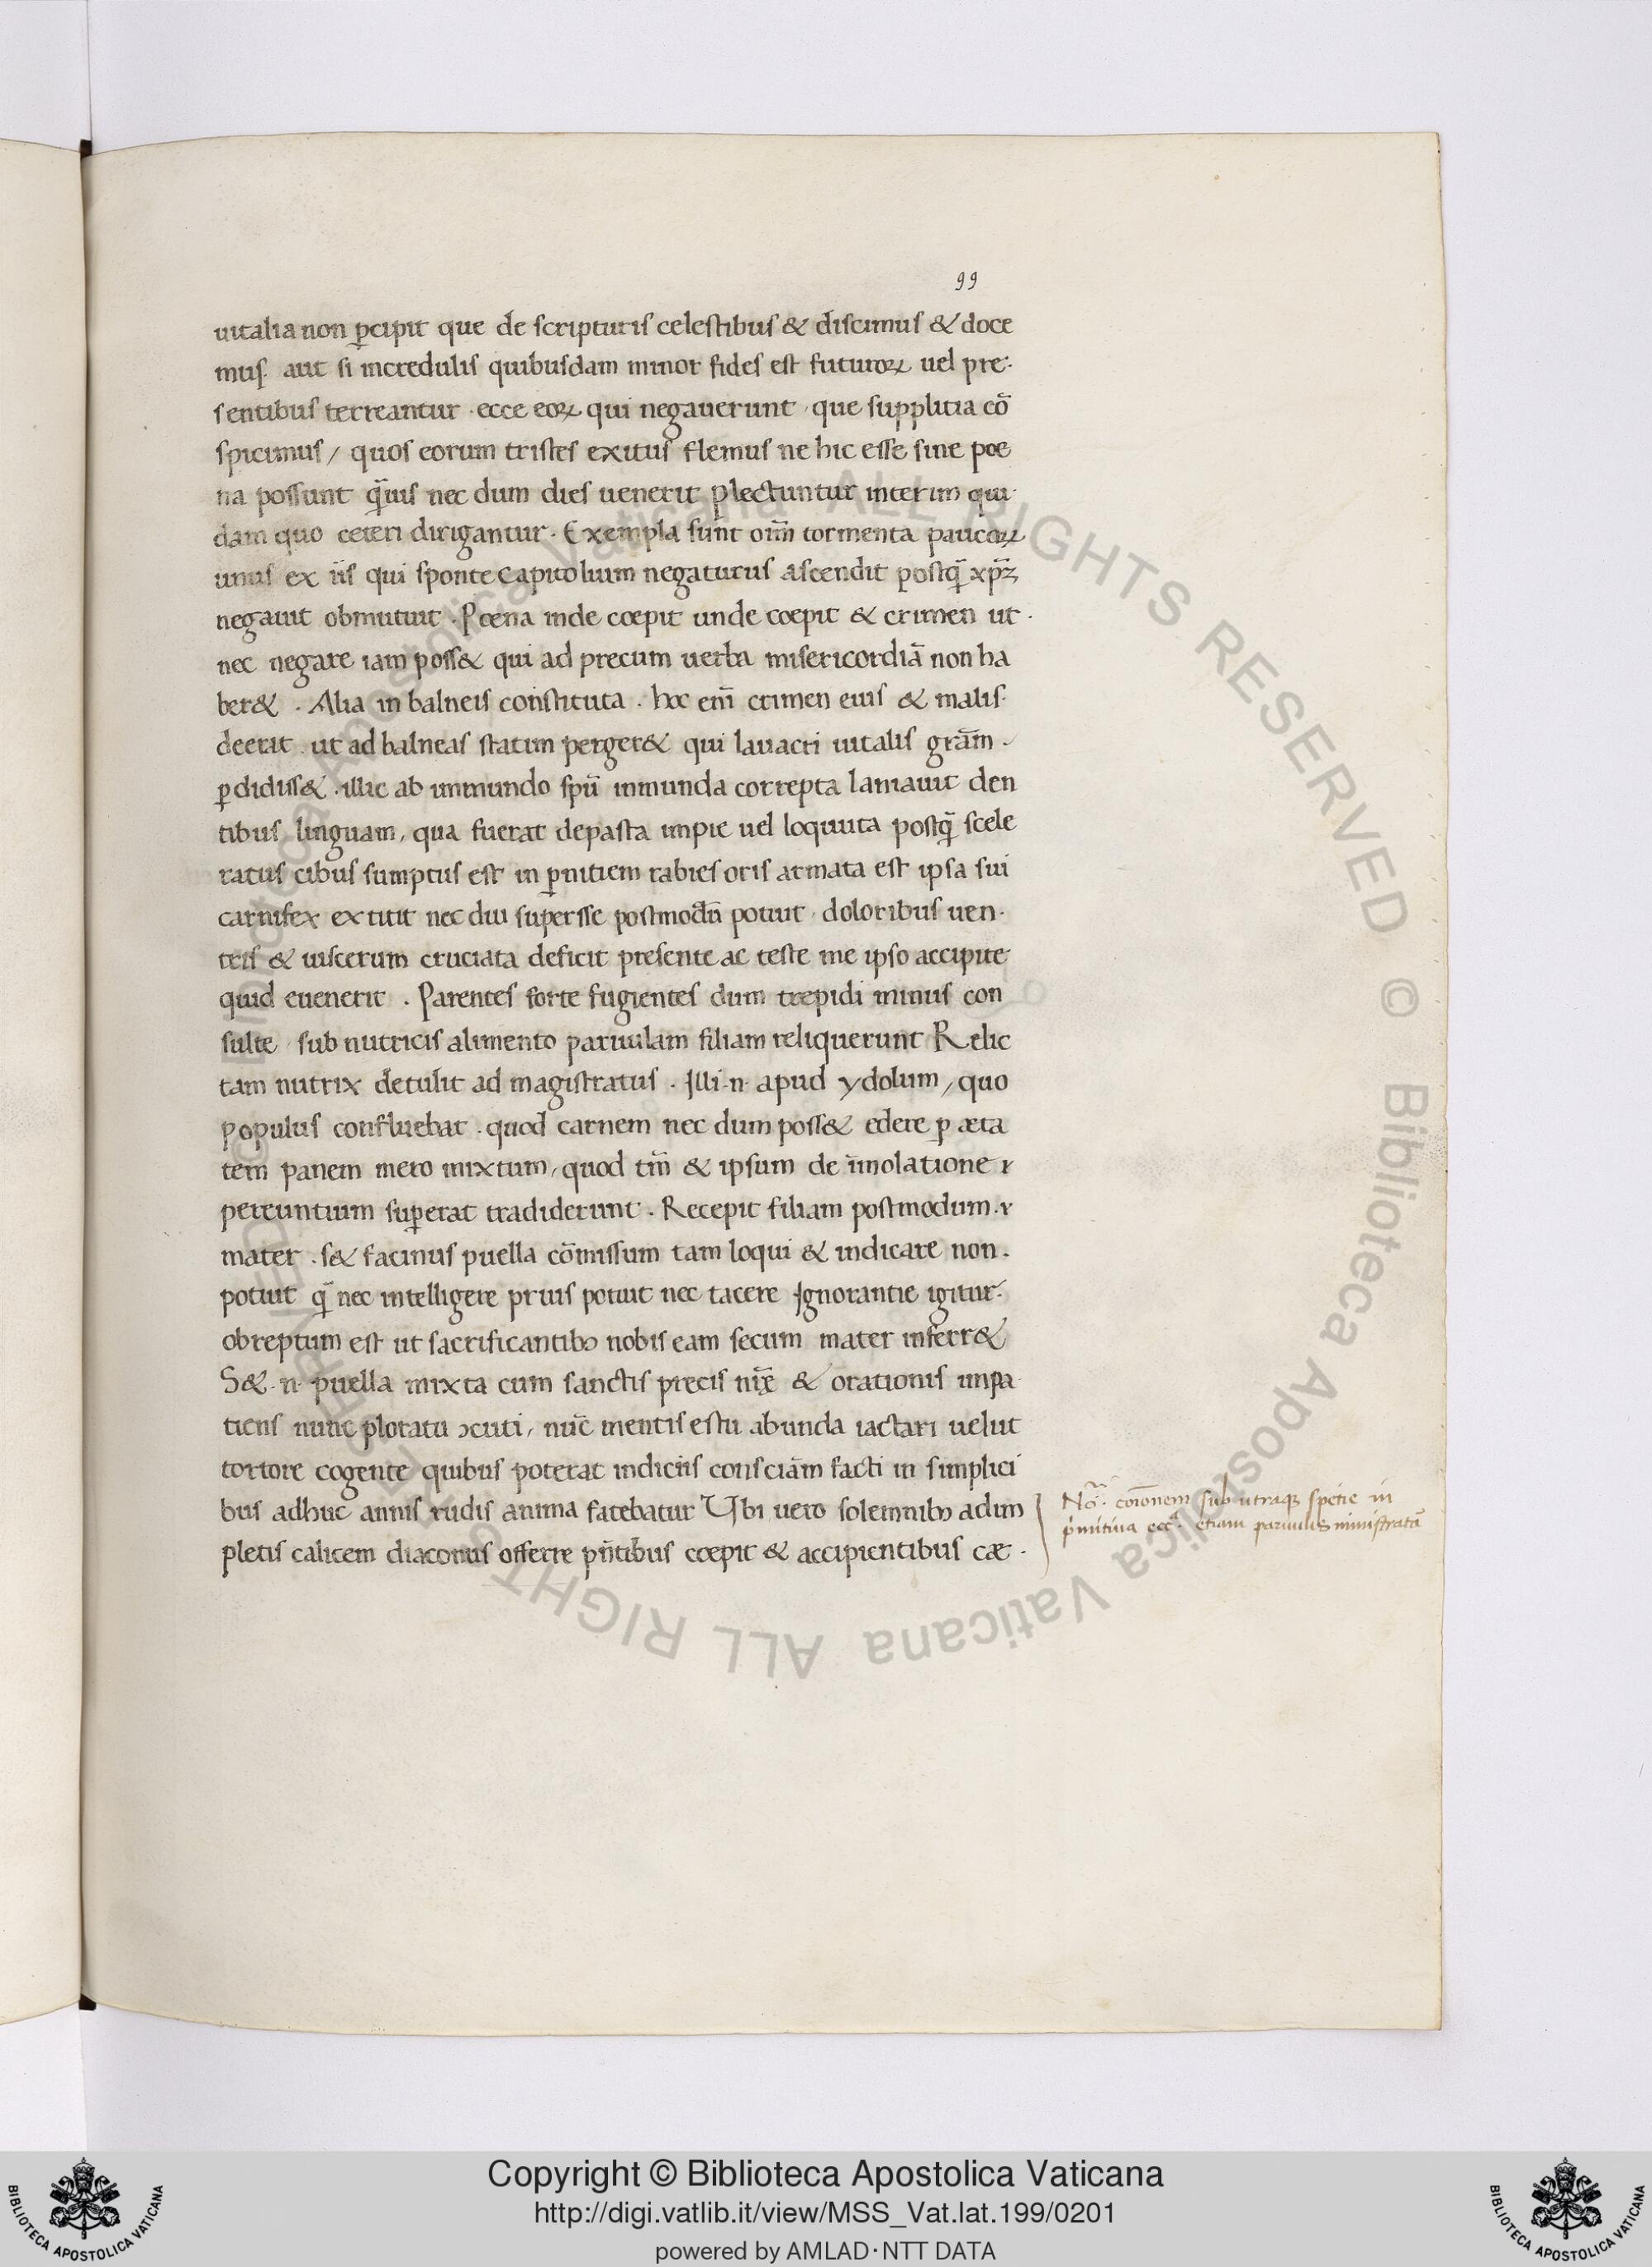 99
uitalia non ꝑcipit que de scripturis celestibus & discimus & doce
mus. aut si incredulis quibusdam minor fides est futuroꝝ uel pre·
sentibus terreantur · ecce eoꝝ qui negauerunt · que supplitia cō
spicimus / quos eorum tristes exitus flemus ne hic esse sine poe
na possunt q̄uis nec dum dies uenerit plectuntur interim qui·
dam quo ceteri dirigantur · Exempla sunt oim̄ tormenta paucoꝝ
unus ex iis qui sponte capitolium negaturus ascendit postq̄ xp̄ꝫ
negauit obmutuit · Poena inde coepit unde coepit & crimen ut ·
nec negare iam poss& qui ad precum uerba misericordiā non ha
ber& · Alia in balneis constituta · hoc em̄ crimen eius & malis·
deerat · ut ad balneas statim perger& qui lauacri uitalis grām ·
ꝑdidiss& · illic ab immundo spū inmunda correpta laniauit den
tibus linguam, qua fuerat depasta impie uel loquuta postq̄ scele
ratus cibus sumptus est in ꝑnitiem rabies oris armata est ipsa sui
carnifex extitit nec diu supersse postmodū potuit · doloribus uen·
tris & uiscerum cruciata deficit presente ac teste me ipso accipite
quid euenerit · Parentes forte fugientes dum trepidi minus con
sulte · sub nutricis alimento paruulam filiam reliquerunt Relic
tam nutrix detulit ad magistratus · Illi ·n· apud ydolum / quo
populus confluebat · quod carnem nec dum poss& edere ꝑ æta
tem panem mero mixtum, quod tm̄ & ipsum de īmolatione
pereuntium suꝑerat tradiderunt · Recepit filiam postmodum ·
mater · s& facinus puella cōmissum tam loqui & indicare non ·
potuit q̄ nec intelligere prius potuit nec tacere Ignorantie igitur·
obreptum est ut sacrificantibꝫ nobis eam secum mater inferr&
S& ·n· puella mixta cum sanctis precis nr̄e & orationis impa
tiens nunc ploratu ɔcuti, nūc mentis estu abunda iactari uelut
tortore cogente quibus poterat indiciis consciām facti in simplici
bus adhuc annis rudis anima fatebatur Ubi uero solemnibꝫ adim
pletis calicem diaconus offerre pn̄tibus coepit & accipientibus cæ ·
Nōᵃ. coīonem sub utraqꝫ spetie in
pͥmitiua ecc̄ᵃ. etiam paruulis ministratā
Copyright © Biblioteca Apostolica Vaticana
http://digi.vatlib.it/view/MSS_Vat.lat.199/0201
powered by AMLAD·NTT DATA
BIBLIOTECA APOSTOLICA VATICANA
BIBLIOTECA APOSTOLICA VATICANA
© Biblioteca Apostolica Vaticana ALL RIGHTS RESERVED © Biblioteca Apostolica Vaticana ALL RIGHTS RESERVED